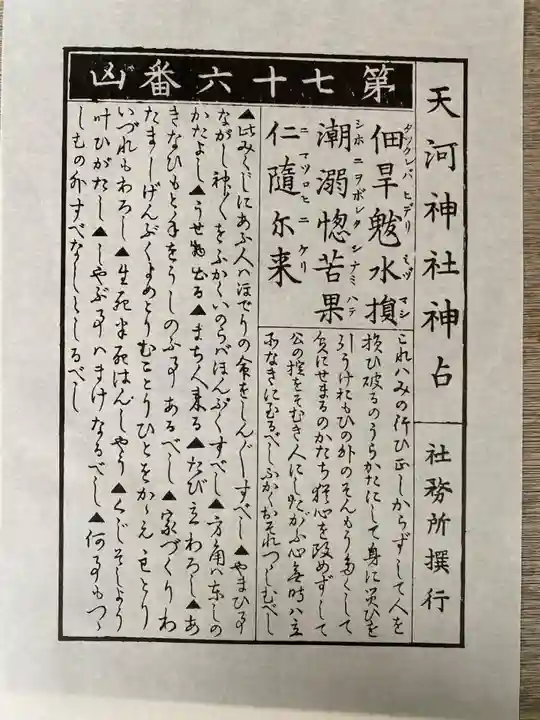 天河神社神占
社務所撰行
第七十六番凶
佃旱魃水損
タツクレバ ヒデリ ミヅ マシ
潮溺惚苦果
シホ ニヲボレタ シナミ ハテ
仁隨尓来
ニ マツロヒ ニ ケリ
これハみの行ひ正しからずして人を
損ひ破るのうらかたにして身に災ひを
引うけおもひの外のそんもう多くして
貧にせまるのかたち猶心を改めずして
公の掟をそむき人にしたがふ心無時ハ立
所なきにいたるべしふかくおそれつゝしむべし
▲此みくじにあふ人ハほでりの命をしんかうすべし▲やまひ事
ながし神くをふかくいのらばほんぷくすべし▲方角ハ東しの
かたよし▲うせ物出る▲まち人来る▲たび立わろし▲あ
きなひもと手をうしのふ事あるべし▲家づくりわ
たましげんぶくよめとりむことりひとをかゝえ
いづれもわろし▲生死半死はんしやう▲くじそしよう
叶ひがたし▲しやうぶ事ハまけなるべし▲何事もつゝ
しむの外すべなしとしるべし